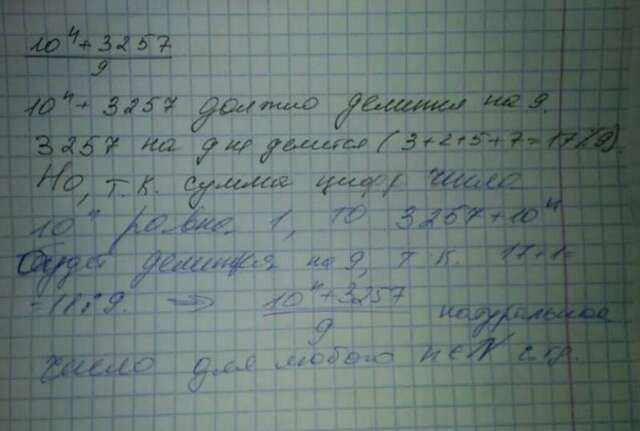 10ⁿ + 3257
9
10ⁿ + 3257 должно делится на 9.
3257 на 9 не делится (3+2+5+7=17⋮̸9).
Но, т.к. сумма цифр числа
10ⁿ равна 1, то 3257+10ⁿ
будет делится на 9, т.к. 17+1=
=18⋮9. ⇒ 10ⁿ+3257 / 9 натуральное
число для любого n∈N ч.т.д.